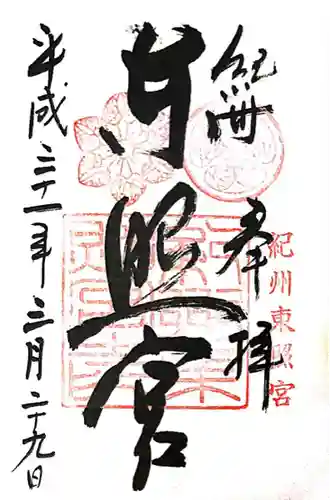 奉拝
紀州
東照宮
平成三十一年三月二十九日
紀州東照宮